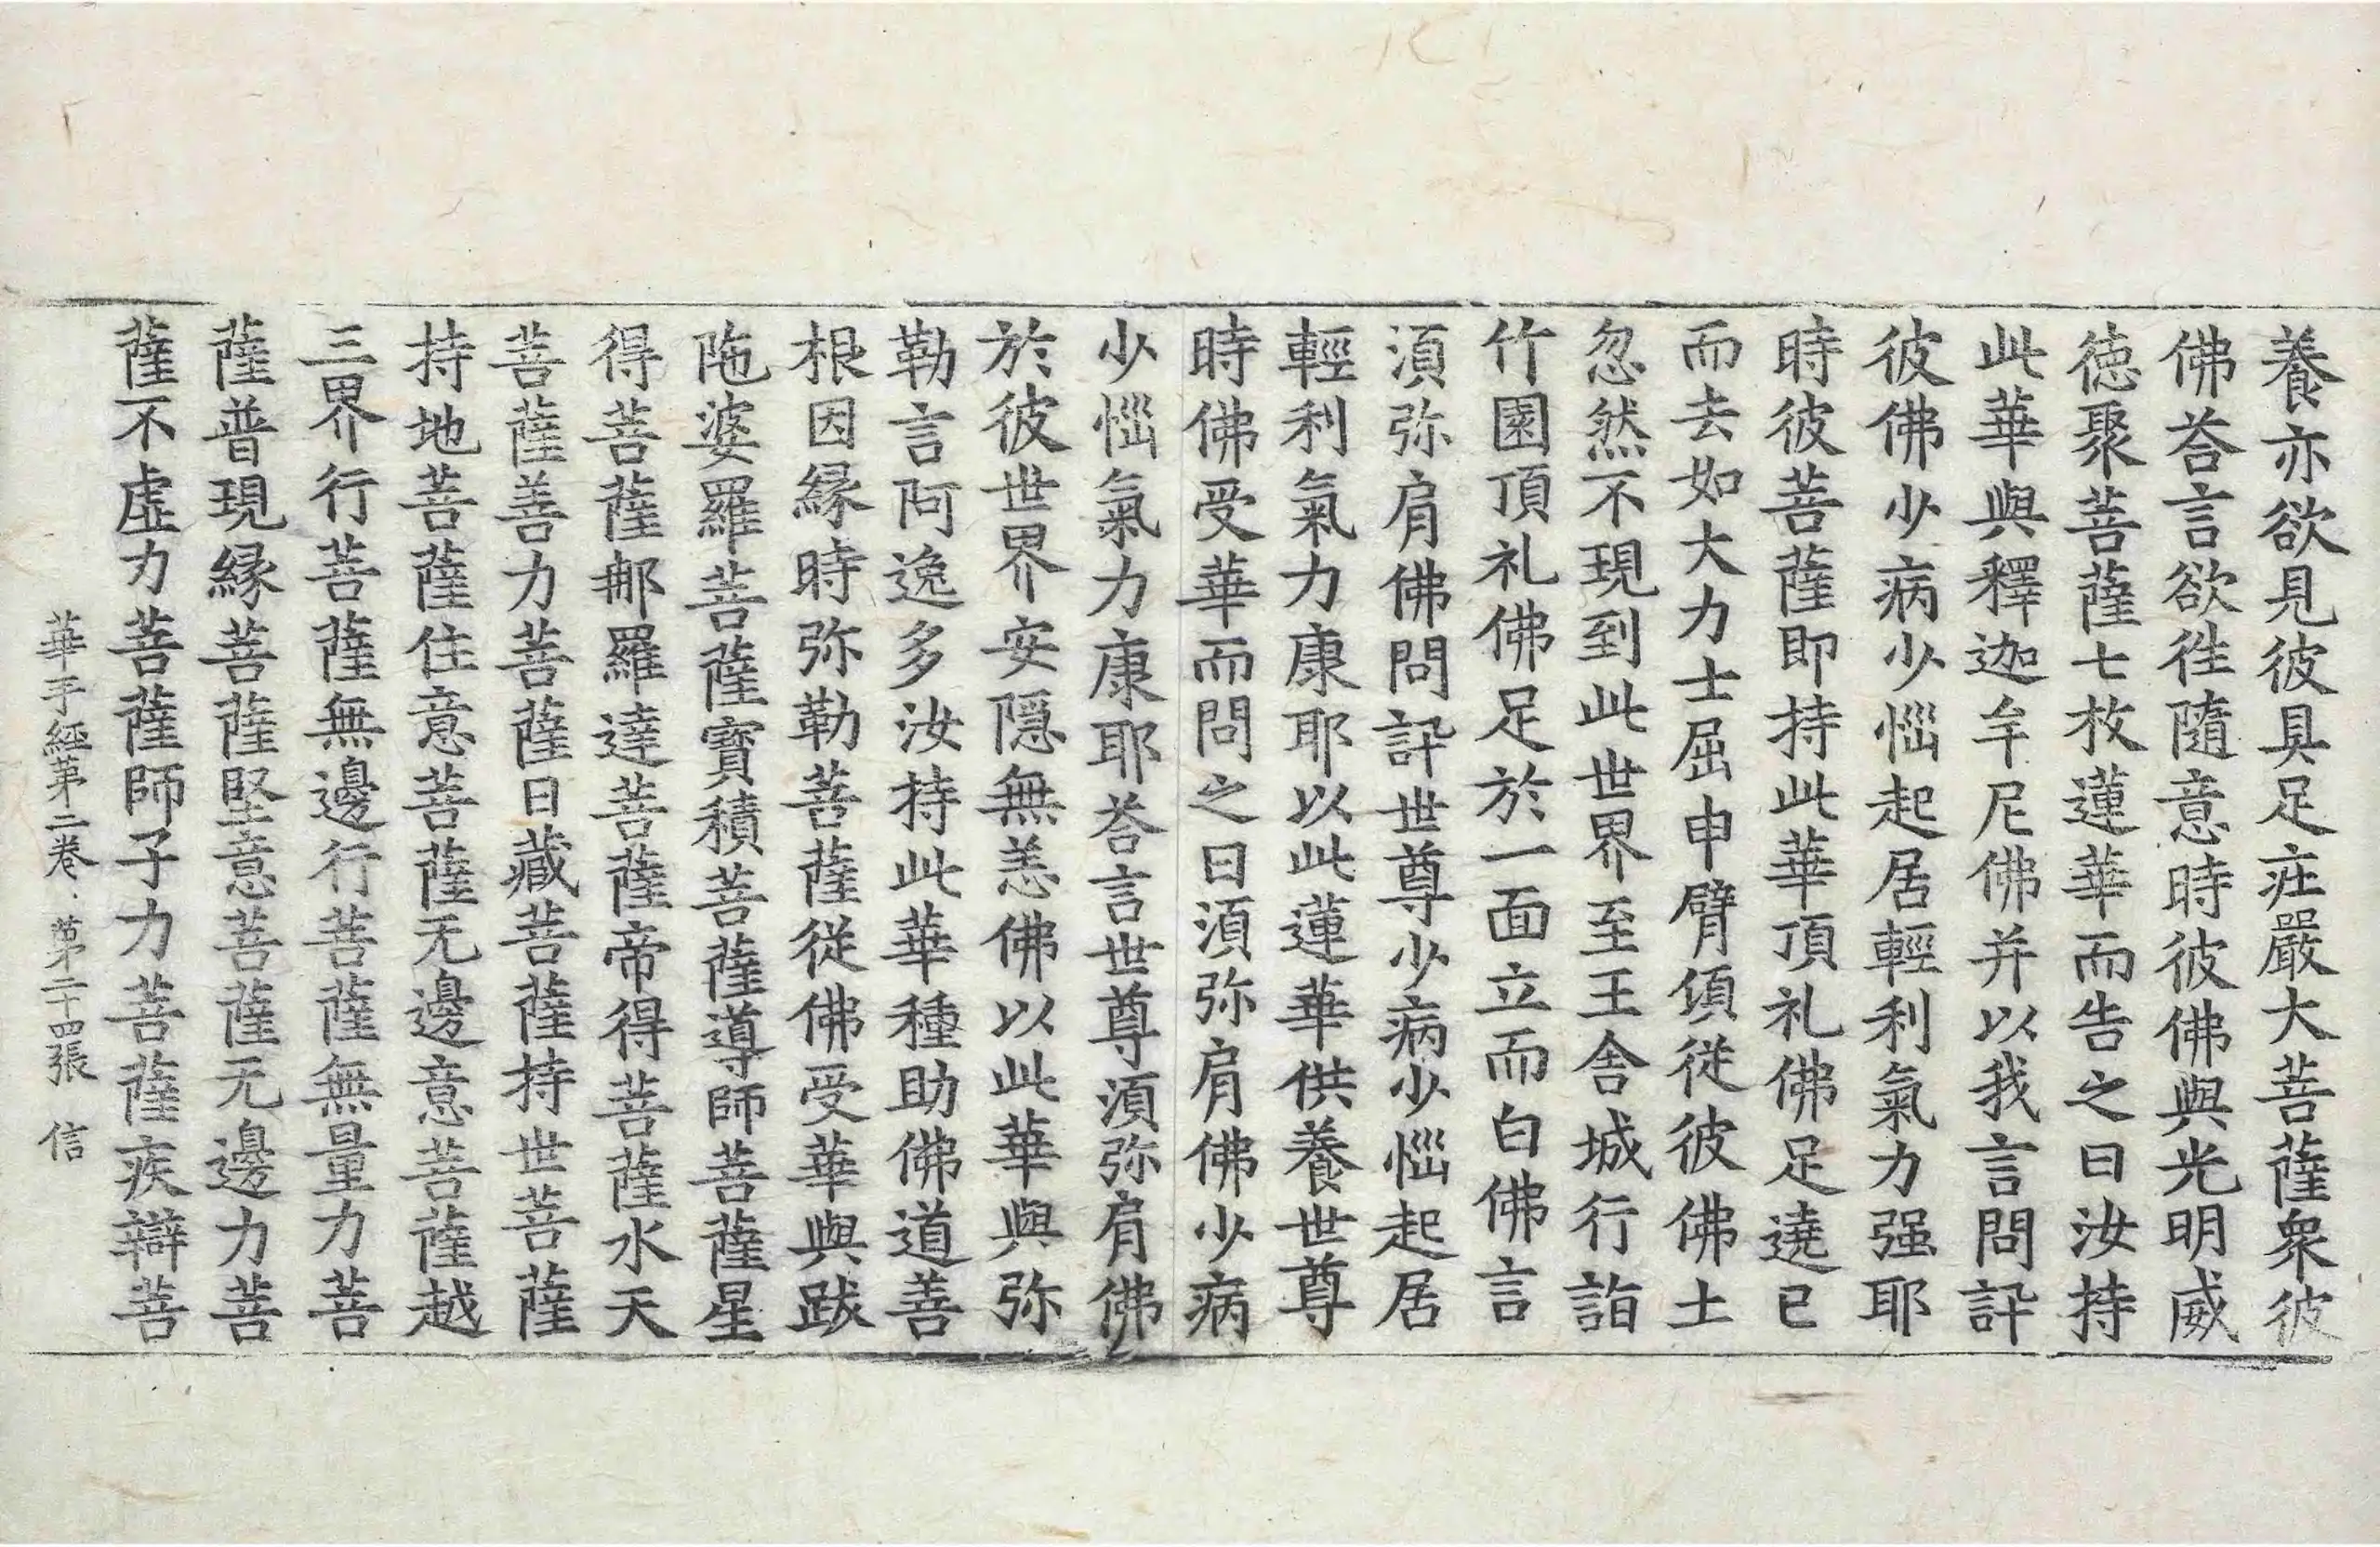 養亦欲見彼具足疘嚴大菩薩衆彼
佛荅言欲徃隨意時彼佛與光明威
徳聚菩薩七枚蓮華而告之曰汝持
此華與釋迦牟尼佛并以我言問訊
彼佛少病少惱起居輕利氣力强耶
時彼菩薩即持此華頂礼佛足遶已
而去如大力士屈申臂頃從彼佛土
忽然不現到此世界至王舍城行詣
竹園頂礼佛足於一面立而白佛言
湏弥肩佛問訊世尊少病少惱起居
輕利氣力康耶以此蓮華供養世尊
時佛受華而問之曰湏弥肩佛少病
少惱氣力康耶荅言世尊湏弥肩佛
於彼世界安隱無恙佛以此華與弥
勒言阿逸多汝持此華種助佛道善
根因縁時弥勒菩薩從佛受華與跋
陁婆羅菩薩寶積菩薩導師菩薩星
得菩薩那羅達菩薩帝得菩薩水天
菩薩善力菩薩日藏菩薩持世菩薩
持地菩薩住意菩薩无邊意菩薩越
三界行菩薩無邊行菩薩無量力菩
薩普現縁菩薩堅意菩薩无邊力菩
薩不虛力菩薩師子力菩薩疾辯菩
華手經第二卷 第二十四張 信